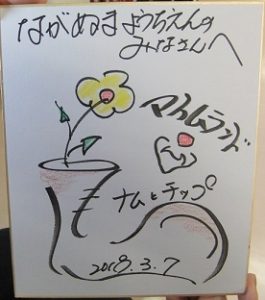 ながぬまようちえんの
みなさんへ
マイムランド
ナムとチップ
2018.3.7